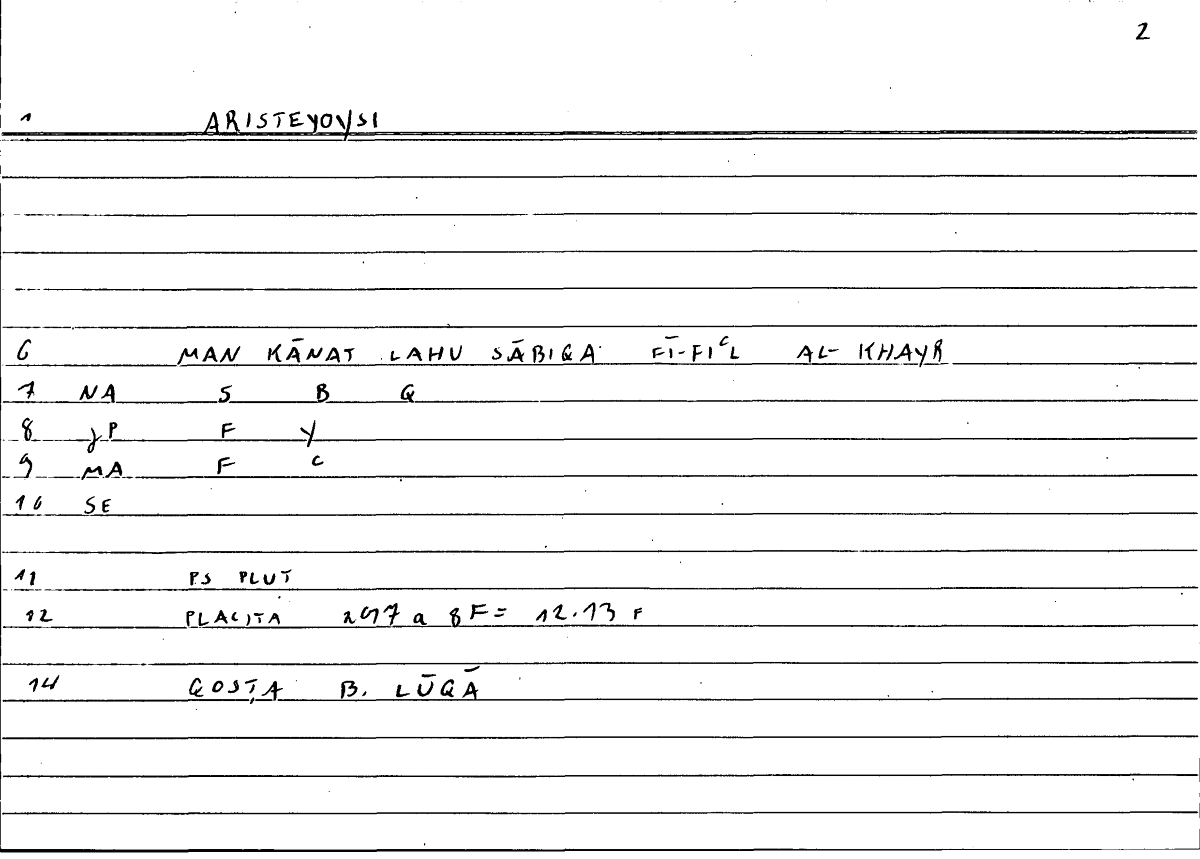 2
1 ARISTEYOYSI
6 MAN KĀNAT LAHU SĀBIQA FĪ-FIᶜL AL-KHAYR
7 NA S B Q
8 JP F Y
9 MA F ᶜ
10 SE
11 PS PLUT
12 PLACITA 297 a 8F= 12.13 F
14 QOSṬA B. LŪQĀ